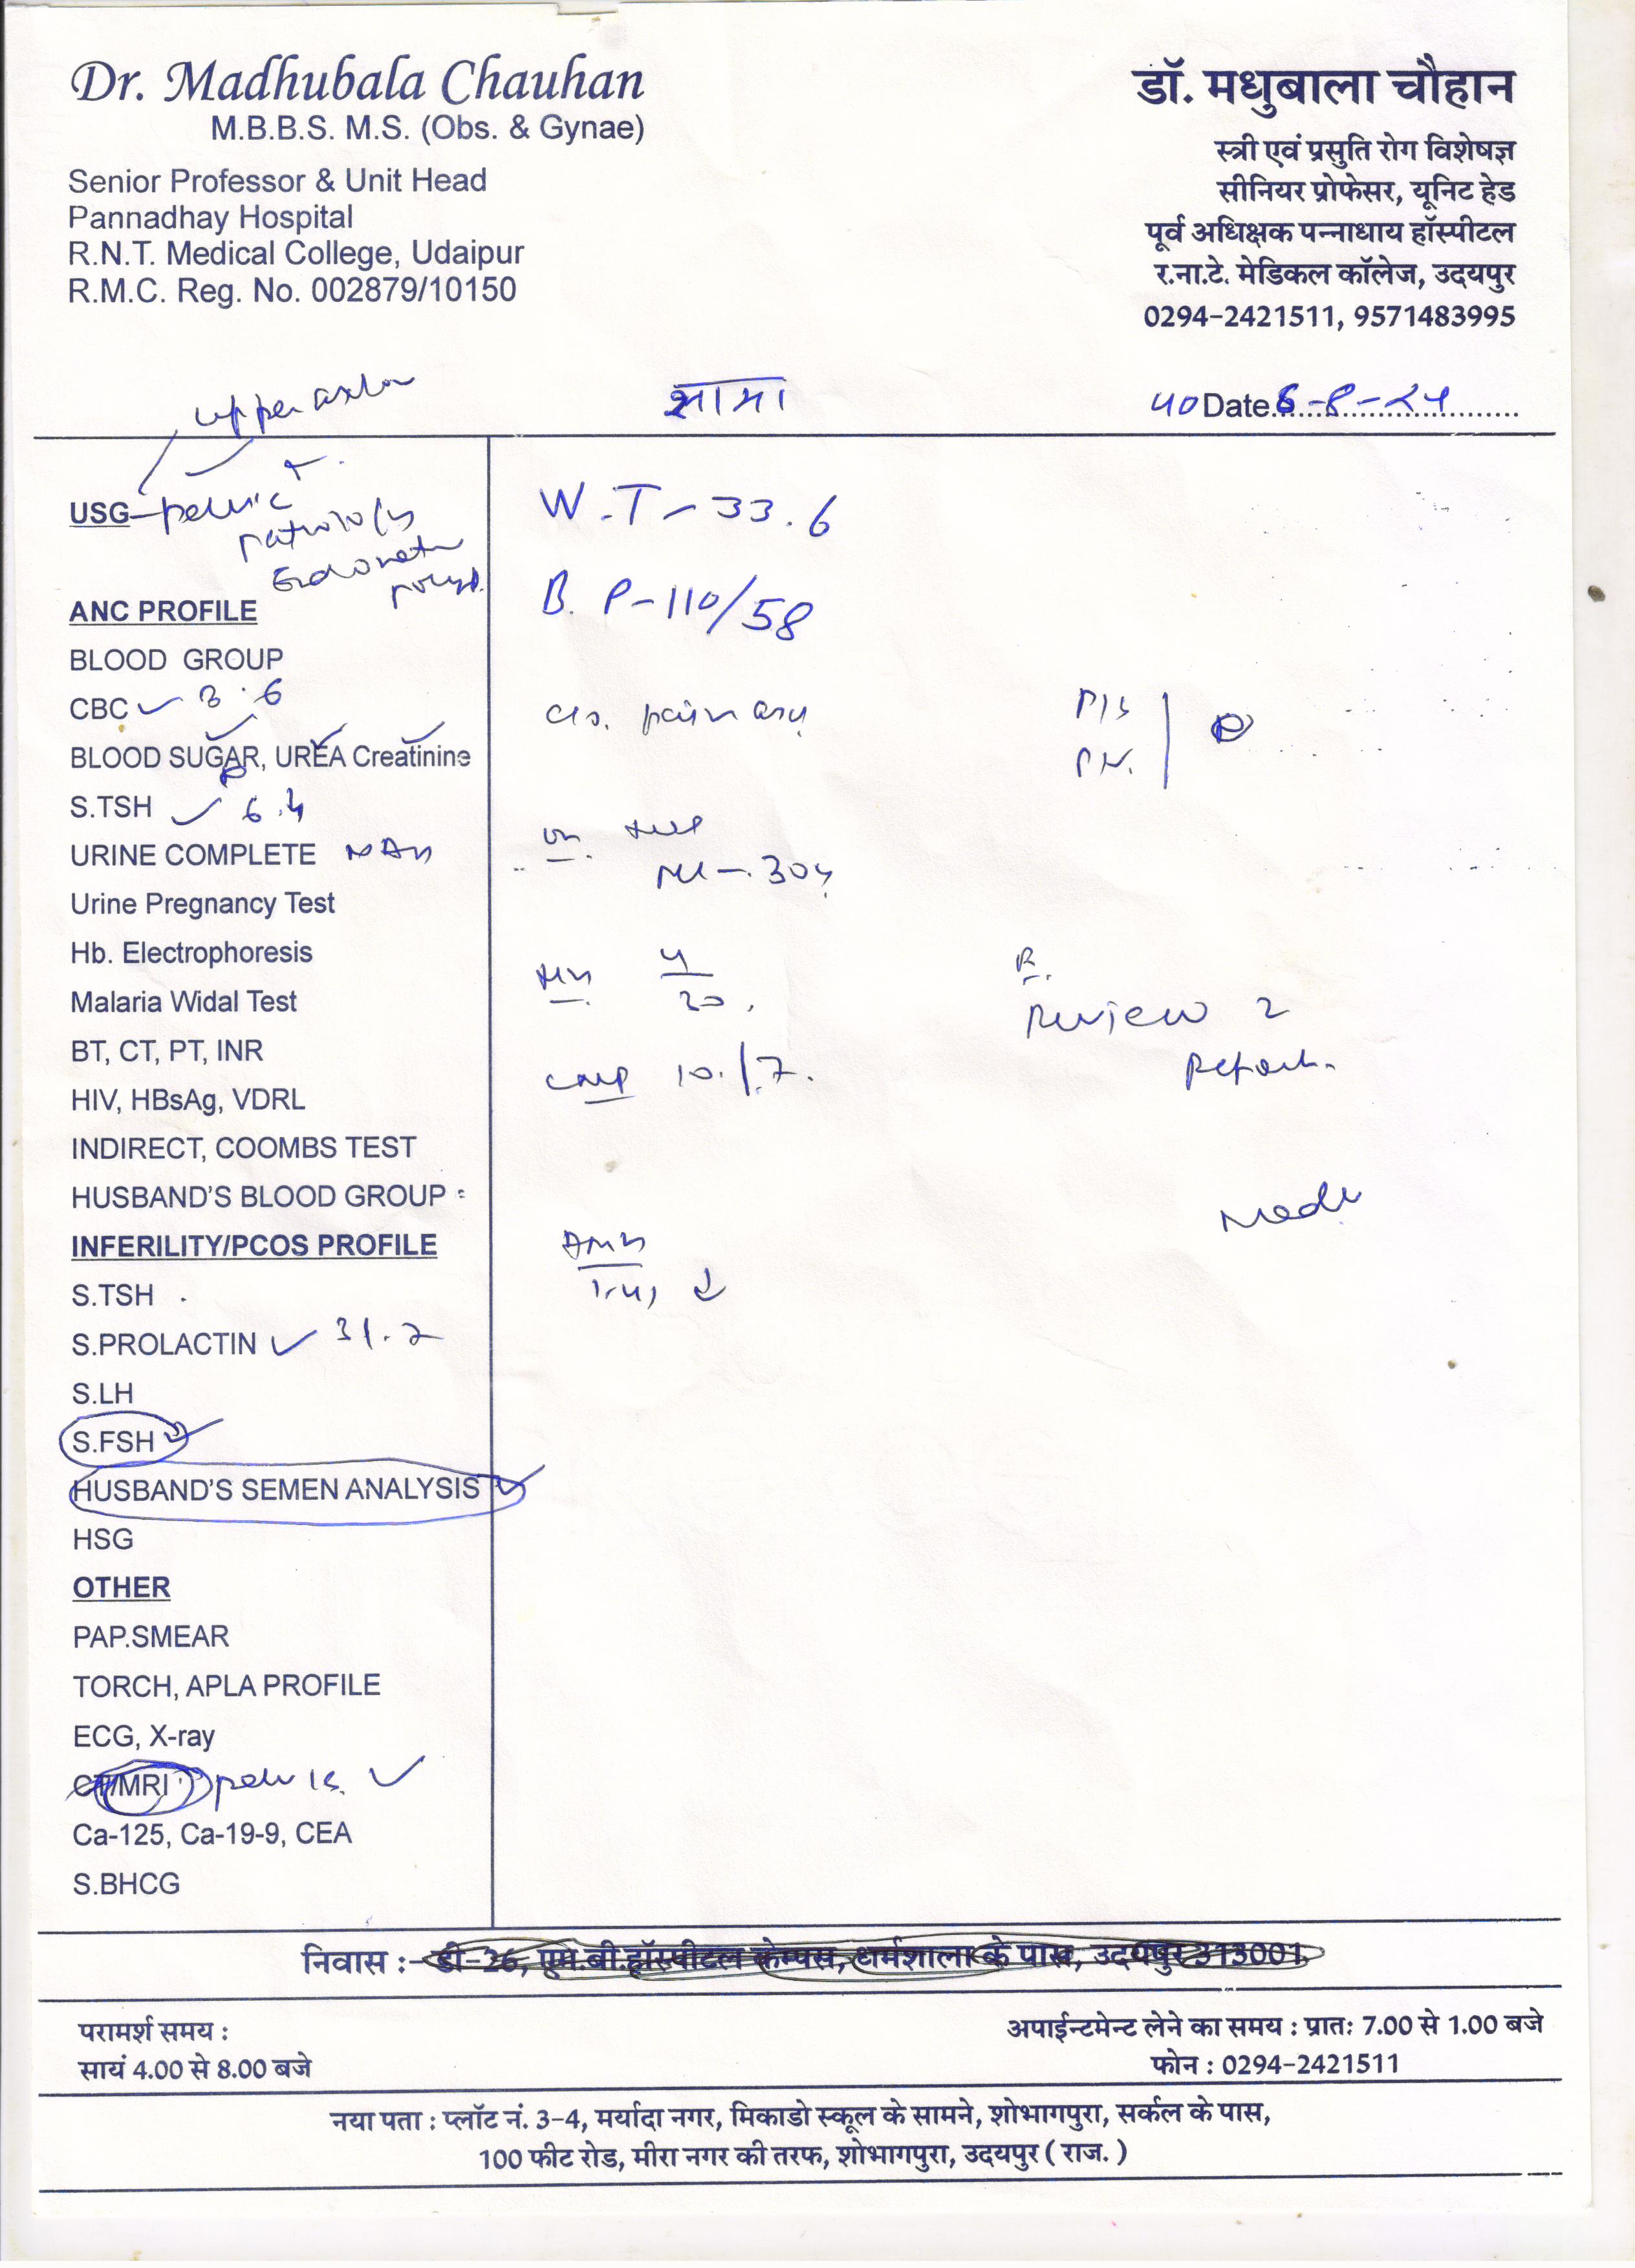 Dr. Madhubala Chauhan
M.B.B.S. M.S. (Obs. & Gynae)
Senior Professor & Unit Head
Pannadhay Hospital
R.N.T. Medical College, Udaipur
R.M.C. Reg. No. 002879/10150
डॉ. मधुबाला चौहान
स्त्री एवं प्रसुति रोग विशेषज्ञ
सीनियर प्रोफेसर, यूनिट हेड
पूर्व अधिक्षक पन्नाधाय हॉस्पीटल
र.ना.टे. मेडिकल कॉलेज, उदयपुर
0294-2421511, 9571483995
upper
40 Date 6-8-24
USG pelvic
ANC PROFILE
BLOOD GROUP
CBC 3.6
BLOOD SUGAR, UREA Creatinine
S.TSH 6.4
URINE COMPLETE
Urine Pregnancy Test
Hb. Electrophoresis
Malaria Widal Test
BT, CT, PT, INR
HIV, HBsAg, VDRL
INDIRECT, COOMBS TEST
HUSBAND'S BLOOD GROUP
INFERILITY/PCOS PROFILE
S.TSH
S.PROLACTIN 31.2
S.LH
S.FSH
HUSBAND'S SEMEN ANALYSIS
HSG
OTHER
PAP.SMEAR
TORCH, APLA PROFILE
ECG, X-ray
CT/MRI pelvis
Ca-125, Ca-19-9, CEA
S.BHCG
W.T - 33.6
B.P - 110/58
10/7.
Review
निवास :- डी-26, एम.बी.हॉस्पीटल केम्पस, धर्मशाला के पास, उदयपुर 313001
परामर्श समय :
सायं 4.00 से 8.00 बजे
अपाईन्टमेन्ट लेने का समय : प्रातः 7.00 से 1.00 बजे
फोन : 0294-2421511
नया पता : प्लॉट नं. 3-4, मर्यादा नगर, मिकाडो स्कूल के सामने, शोभागपुरा, सर्कल के पास,
100 फीट रोड, मीरा नगर की तरफ, शोभागपुरा, उदयपुर ( राज. )